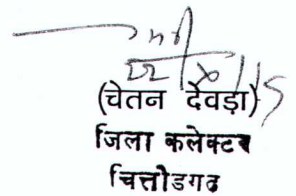 (चेतन देवड़ा)
जिला कलेक्टर
चित्तोडगढ